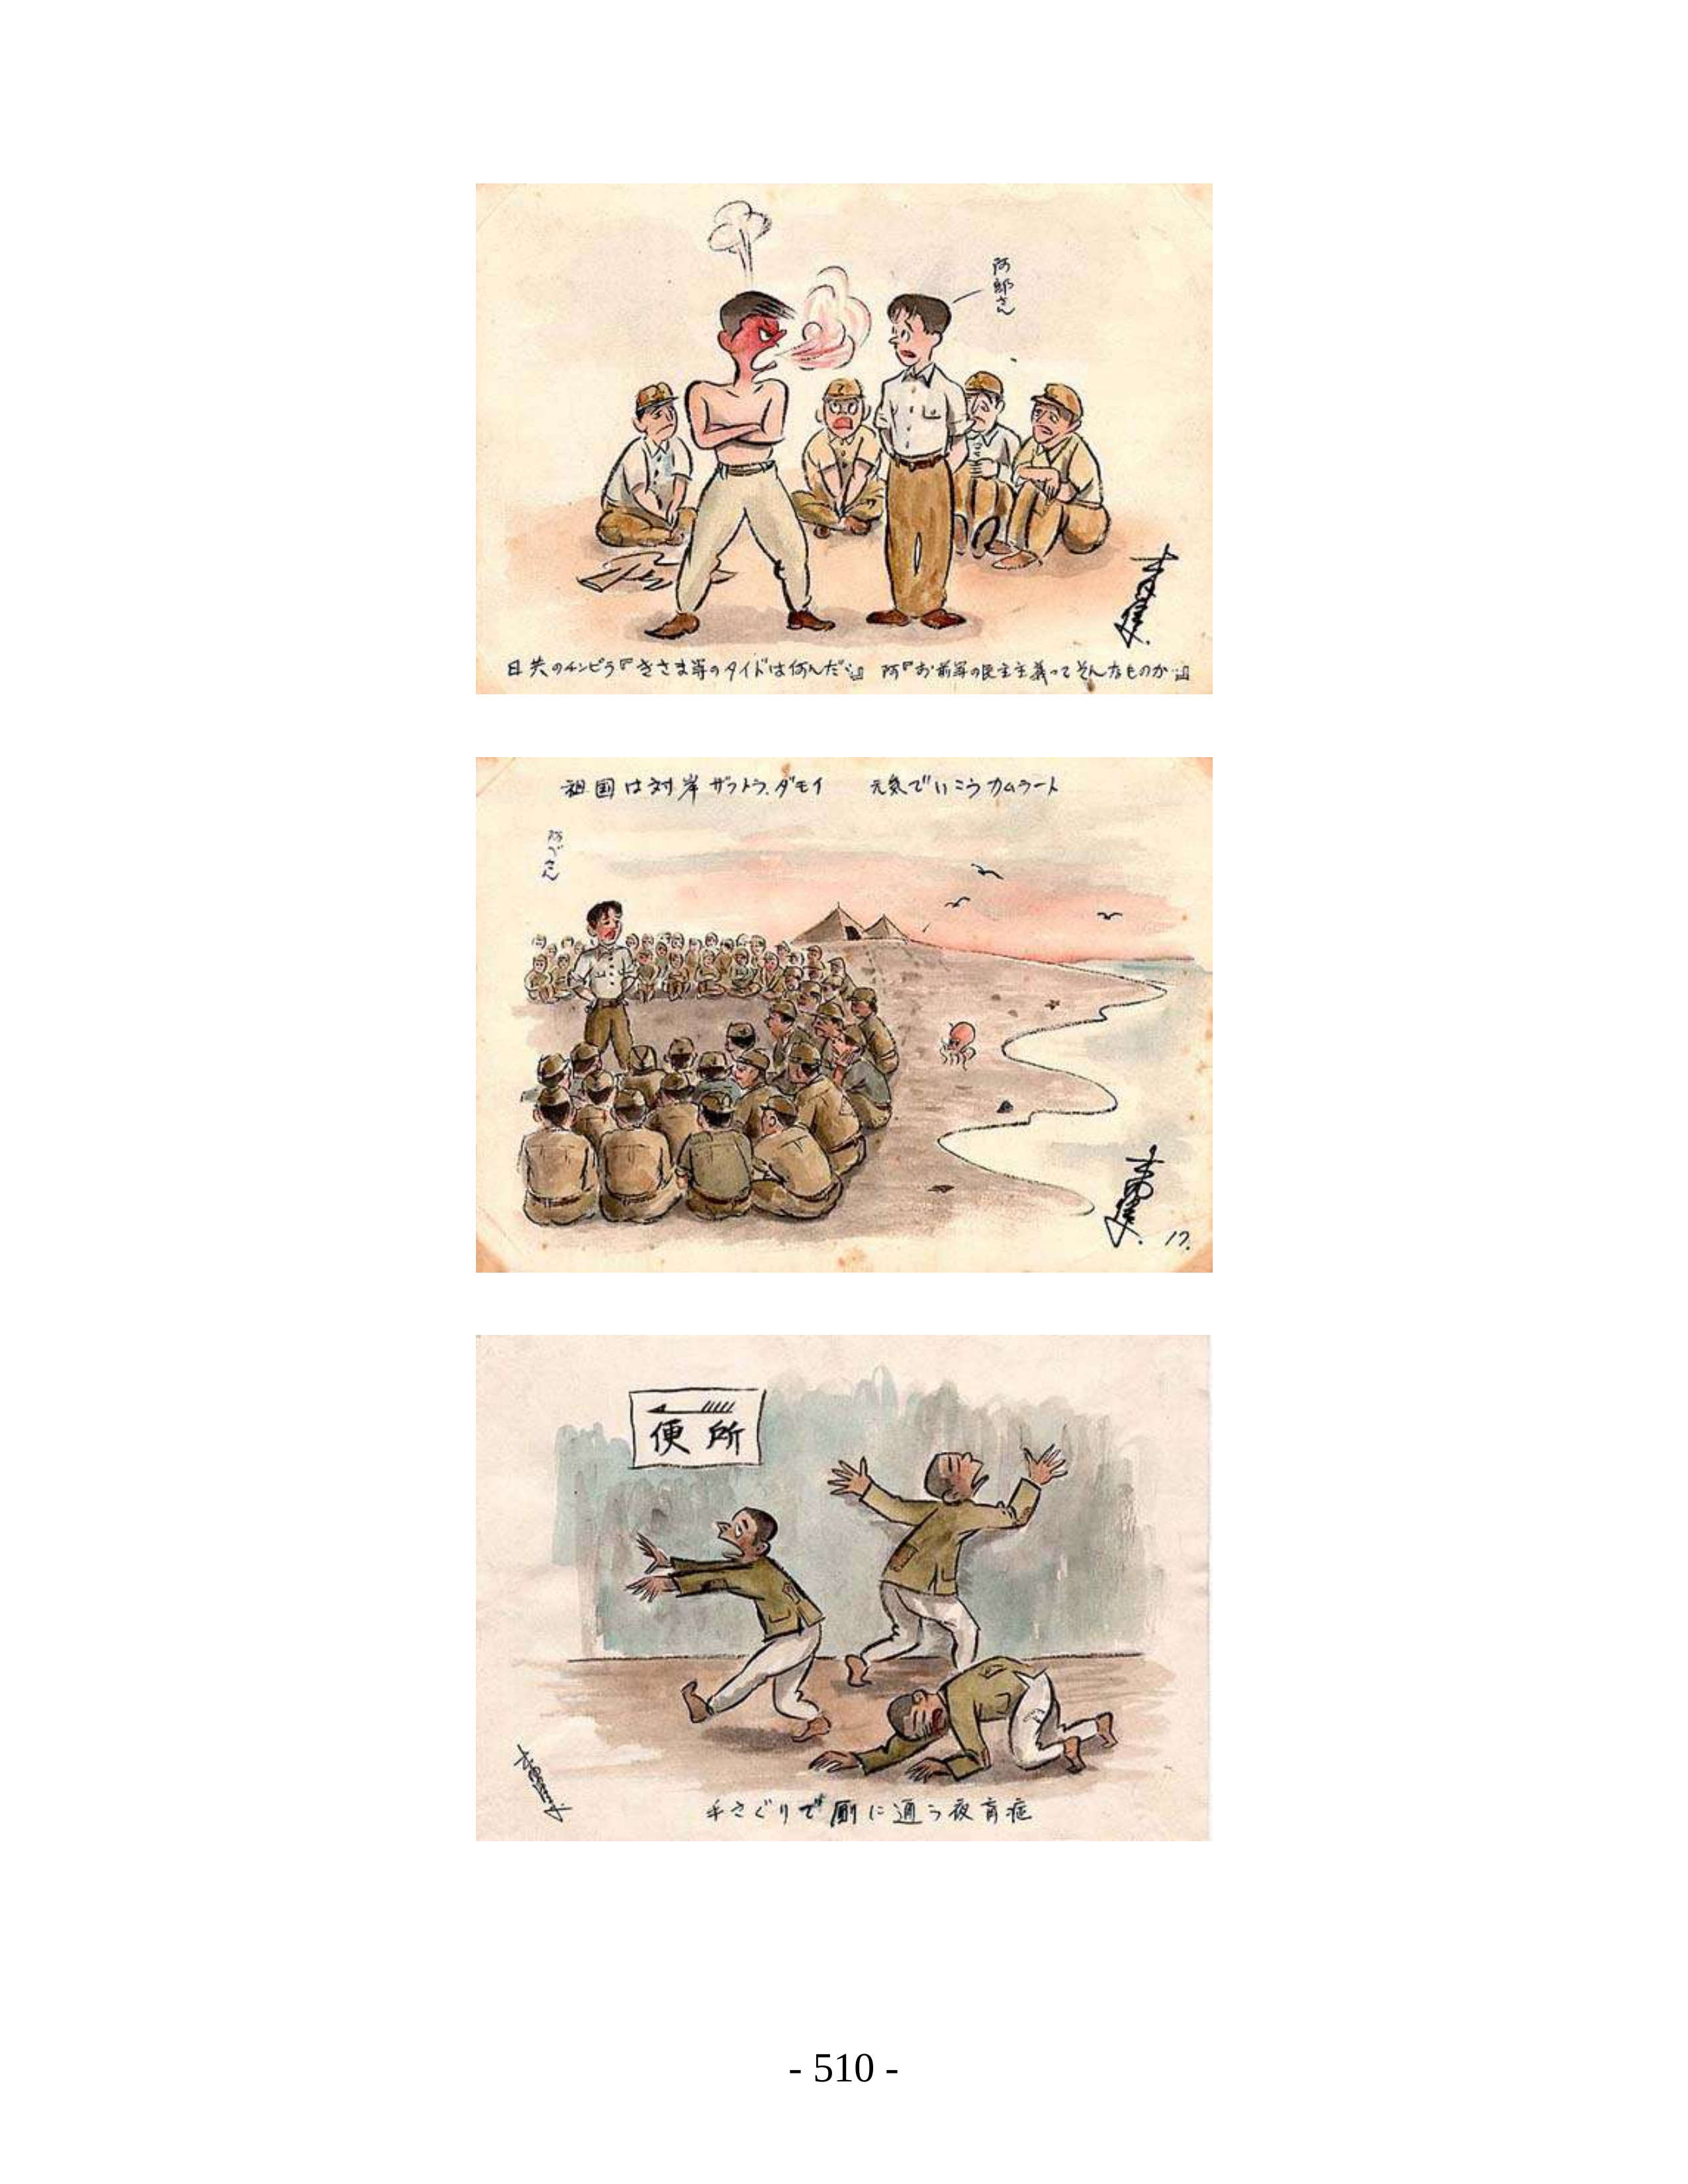 阿部さん
日共のチンピラ『きさま等のタイドは何んだ…』 阿『お前等の民主主義ってそんなものか…』
祖国は対岸ザフトラ、ダモイ 元気でいこうカムラート
阿べさん
17.
便所
手さぐりで厠に通う夜盲症
- 510 -